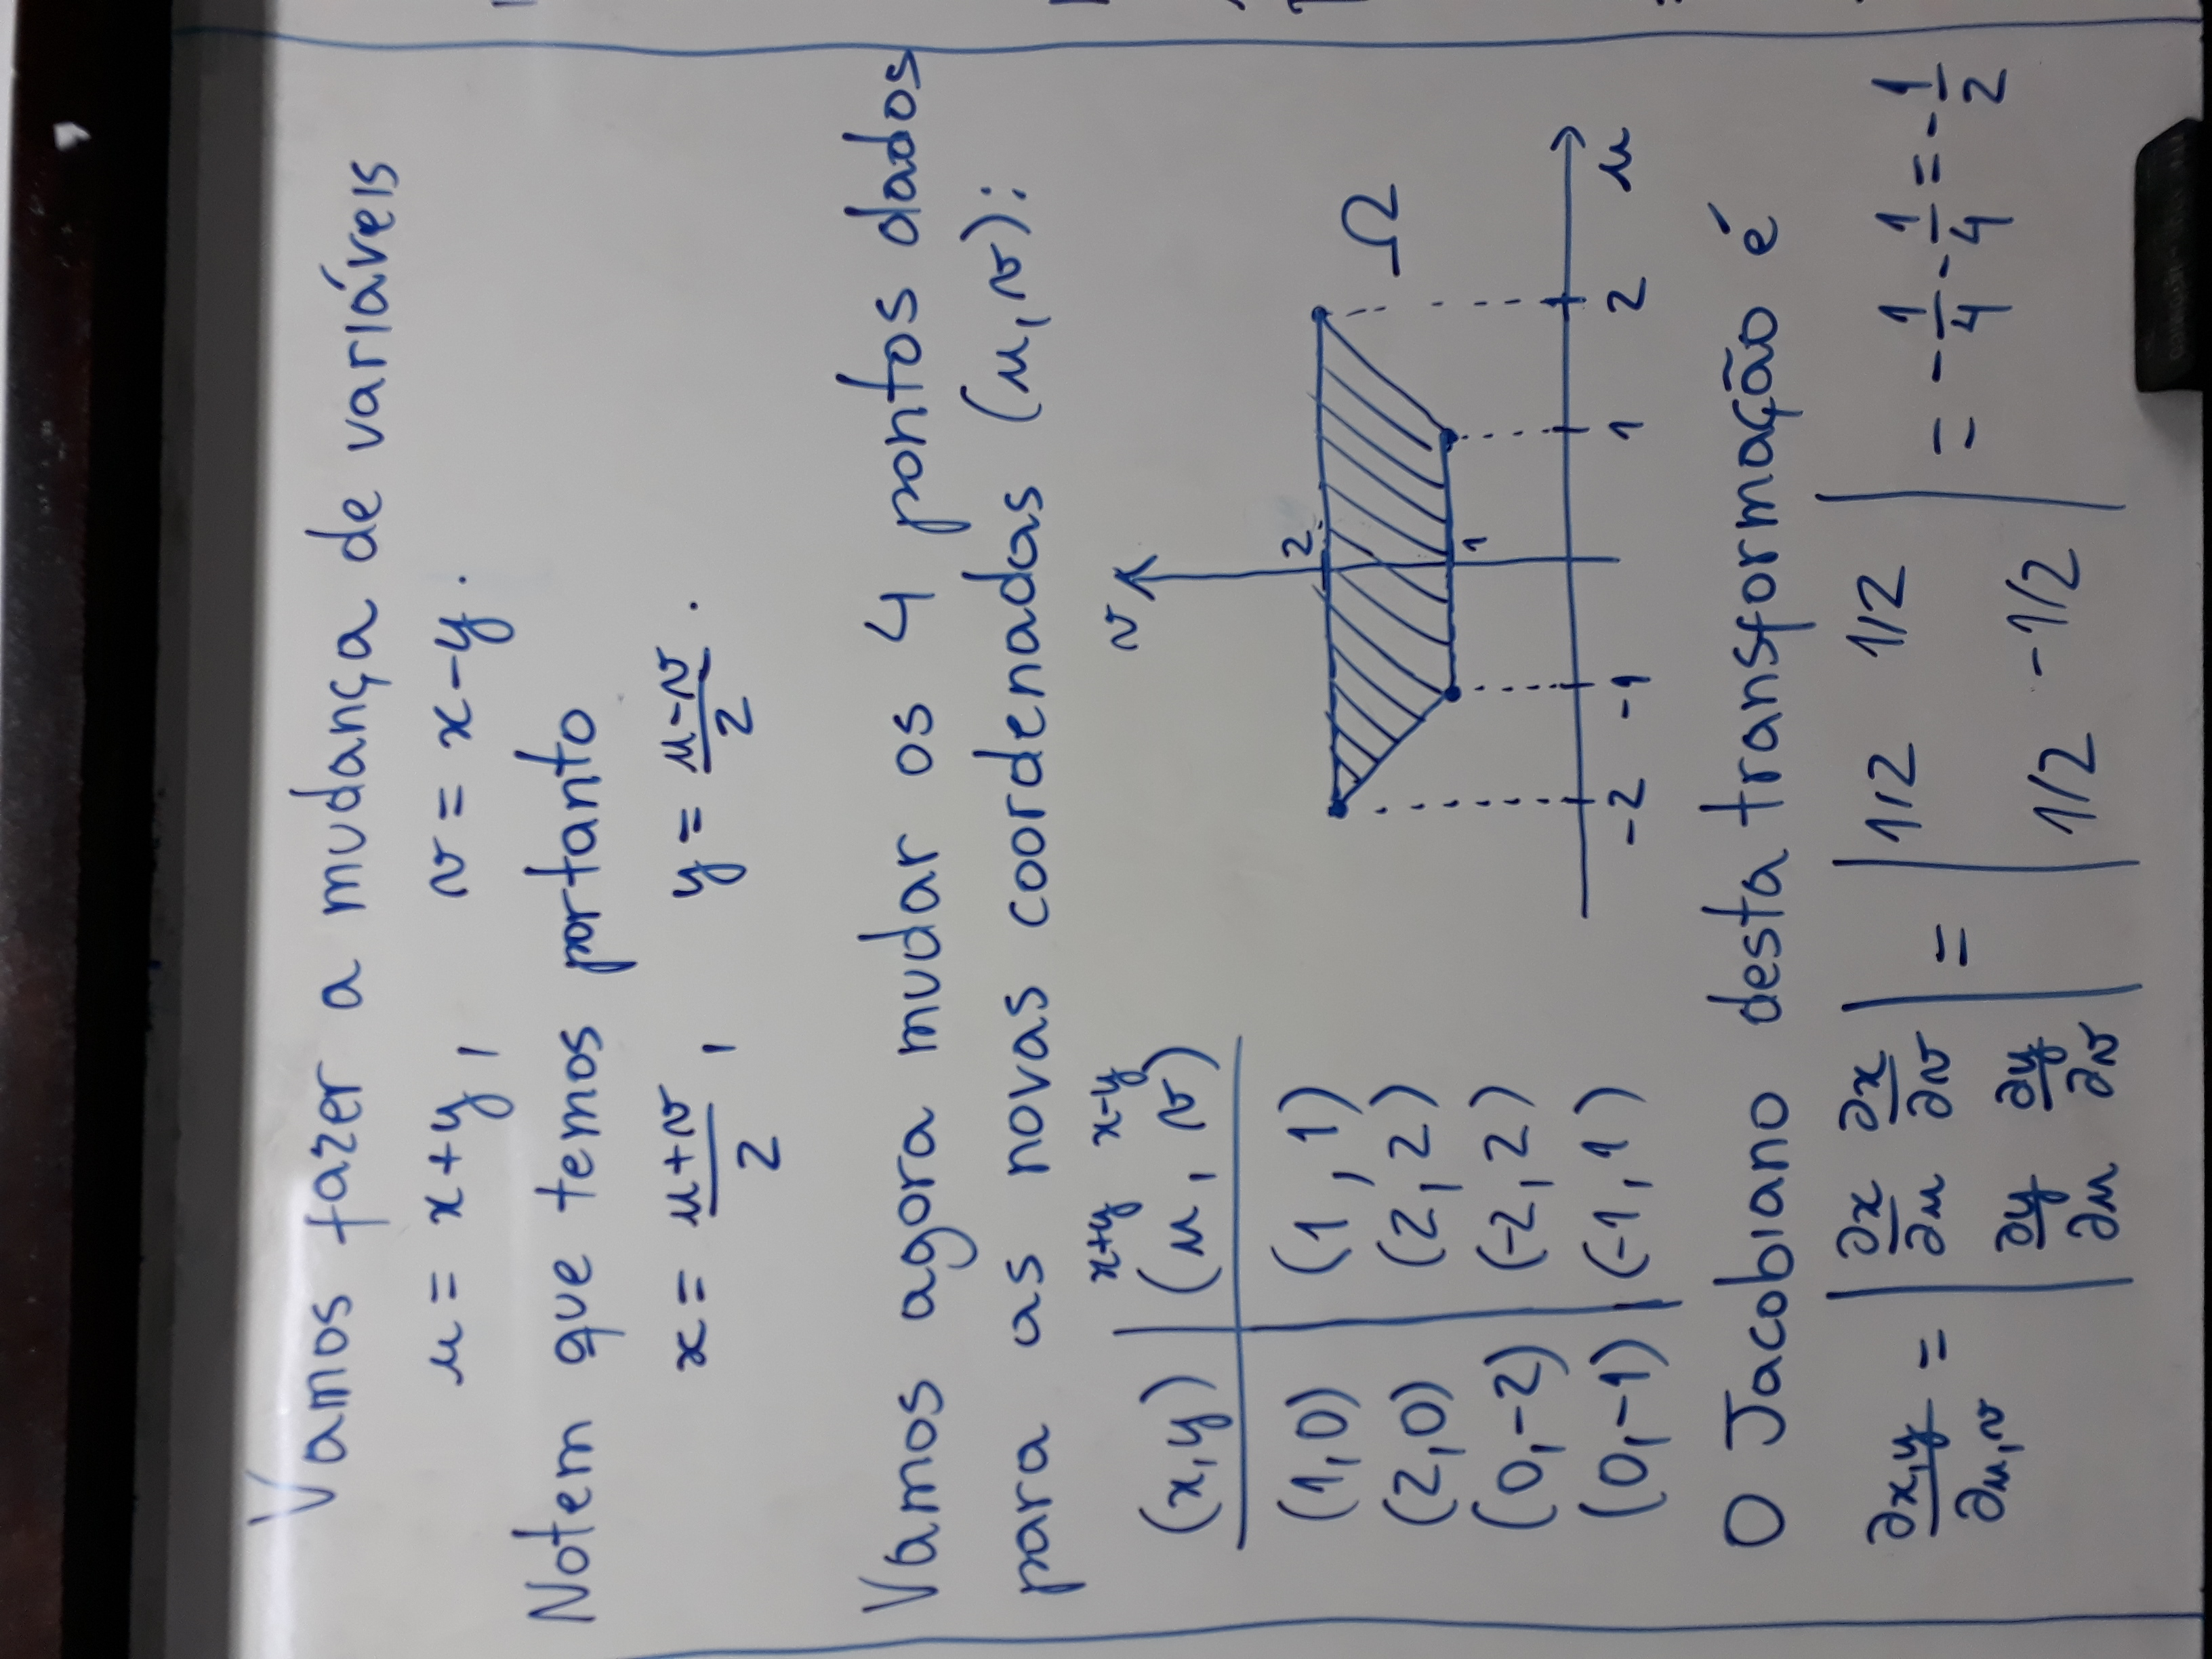 Vamos fazer a mudança de variáveis
u = x+y, v = x-y.
Notem que temos portanto
x = (u+v)/2, y = (u-v)/2.
Vamos agora mudar os 4 pontos dados
para as novas coordenadas (u,v):
x+y x-y
(x,y) | (u, v)
(1,0) | (1, 1)
(2,0) | (2, 2)
(0,-2) | (-2, 2)
(0,-1) | (-1, 1)
v
2
Ω
1
-2 -1 1 2 u
O Jacobiano desta transformação é
∂x,y/∂u,v = | ∂x/∂u ∂x/∂v ; ∂y/∂u ∂y/∂v | = | 1/2 1/2 ; 1/2 -1/2 | = -1/4 - 1/4 = -1/2